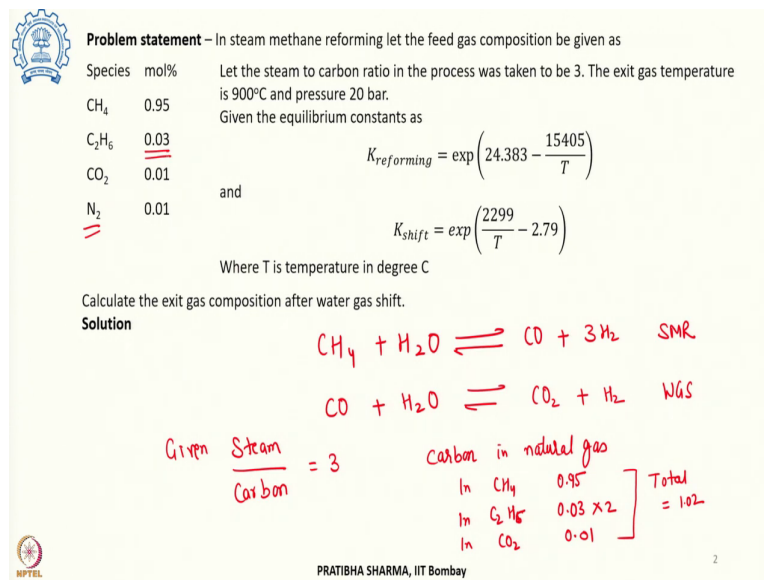 Problem statement – In steam methane reforming let the feed gas composition be given as
Species mol%
CH4 0.95
C2H6 0.03
CO2 0.01
N2 0.01
Let the steam to carbon ratio in the process was taken to be 3. The exit gas temperature
is 900°C and pressure 20 bar.
Given the equilibrium constants as
K_reforming = exp(24.383 − 15405/T)
and
K_shift = exp(2299/T − 2.79)
Where T is temperature in degree C
Calculate the exit gas composition after water gas shift.
Solution
CH4 + H2O ⇌ CO + 3H2 SMR
CO + H2O ⇌ CO2 + H2 WGS
Given Steam/Carbon = 3
Carbon in natural gas
In CH4 0.95
In C2H6 0.03 × 2
In CO2 0.01
Total
= 1.02
NPTEL
PRATIBHA SHARMA, IIT Bombay
2